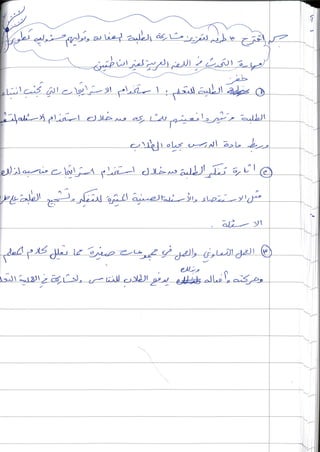 اقترح ٣ طرق لتعزيز مشاركة الطلبة بفعالية وتوليهم مسؤولية تطوير
مهارة التحدث في اللغة العربية لغير الناطقين
① حفز الطلبة للتعلم : استخدام الاستراتيجيات التي تجذب انتباه
الطلبة وتثير دافعيتهم للمشاركة من خلال استخدام الاسئلة
وربط مادة الدرس بحياة الطلاب
② اثارة تفكير الطلبة من خلال استخدام استراتيجيات مناسبة لذلك
مثل الاستقصاء والأسئلة الصفية المثيرة للتفكير وتشجيع الطلبة على
الاسئلة .
③ العمل التعاوني والعمل في مجموعات صغيرة مما يقلل كلام المعلم
وحركته وأفعاله وذلك يدفع الطلاب للتنافس والمشاركة في العملية